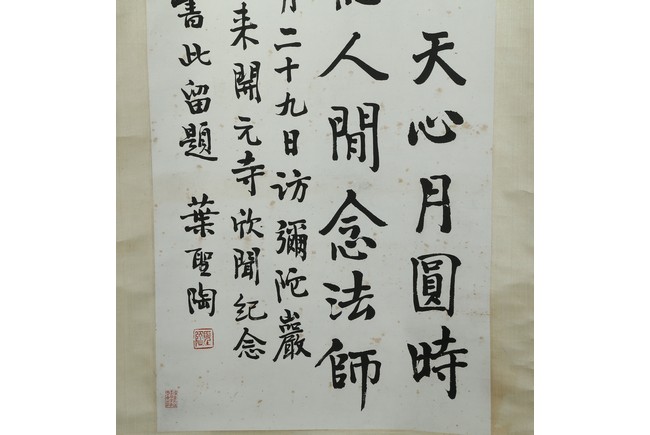 天心月圓時
人間念法師
月二十九日访彌陀巖
来開元寺欣聞纪念
書此留題 葉聖陶